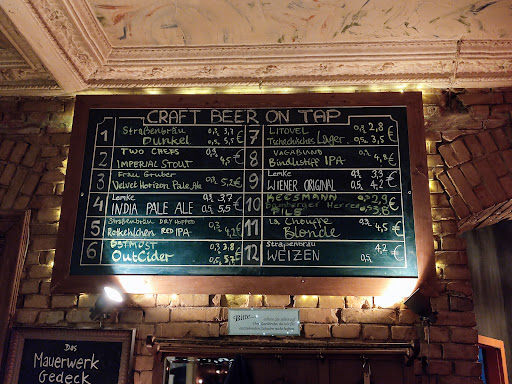 CRAFT BEER ON TAP
1 Straßenbräu 0,3 3,7
Dunkel 0,5 5,5 €
2 TWO CHEFS 0,3
IMPERIAL STOUT 4,5 €
3 Frau Gruber
Velvet Horizon Pale Ale 0,3 5,2 €
4 Lemke 0,3 3,7
INDIA PALE ALE 0,5 5,5 €
5 Straßenbräu DRY HOPPED
Rotkehlchen RED IPA 0,3 4,2 €
6 OSTMOST 0,3 3,8
OutCider 0,5 5,7 €
7 LITOVEL 0,3 2,8
Tschechisches Lager 0,5 3,5 €
8 VAGABUND 0,3
Bindlestiff IPA 4,8 €
9 Lemke 0,3 3,3
WIENER ORIGINAL 0,5 4,2 €
10 KEESMANN 0,3 2,9
Bamberger Herren
PILS 0,5 3,8 €
11 La Chouffe
Blonde 0,3 4,5 €
12 Straßenbräu 4,2
WEIZEN 0,5 €
Bitte
Das
Mauerwerk
Gedeck